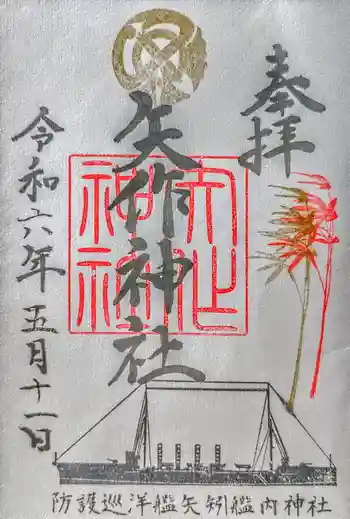 奉拝
矢作神社
矢作神社
令和六年五月十一日
防護巡洋艦矢矧艦内神社